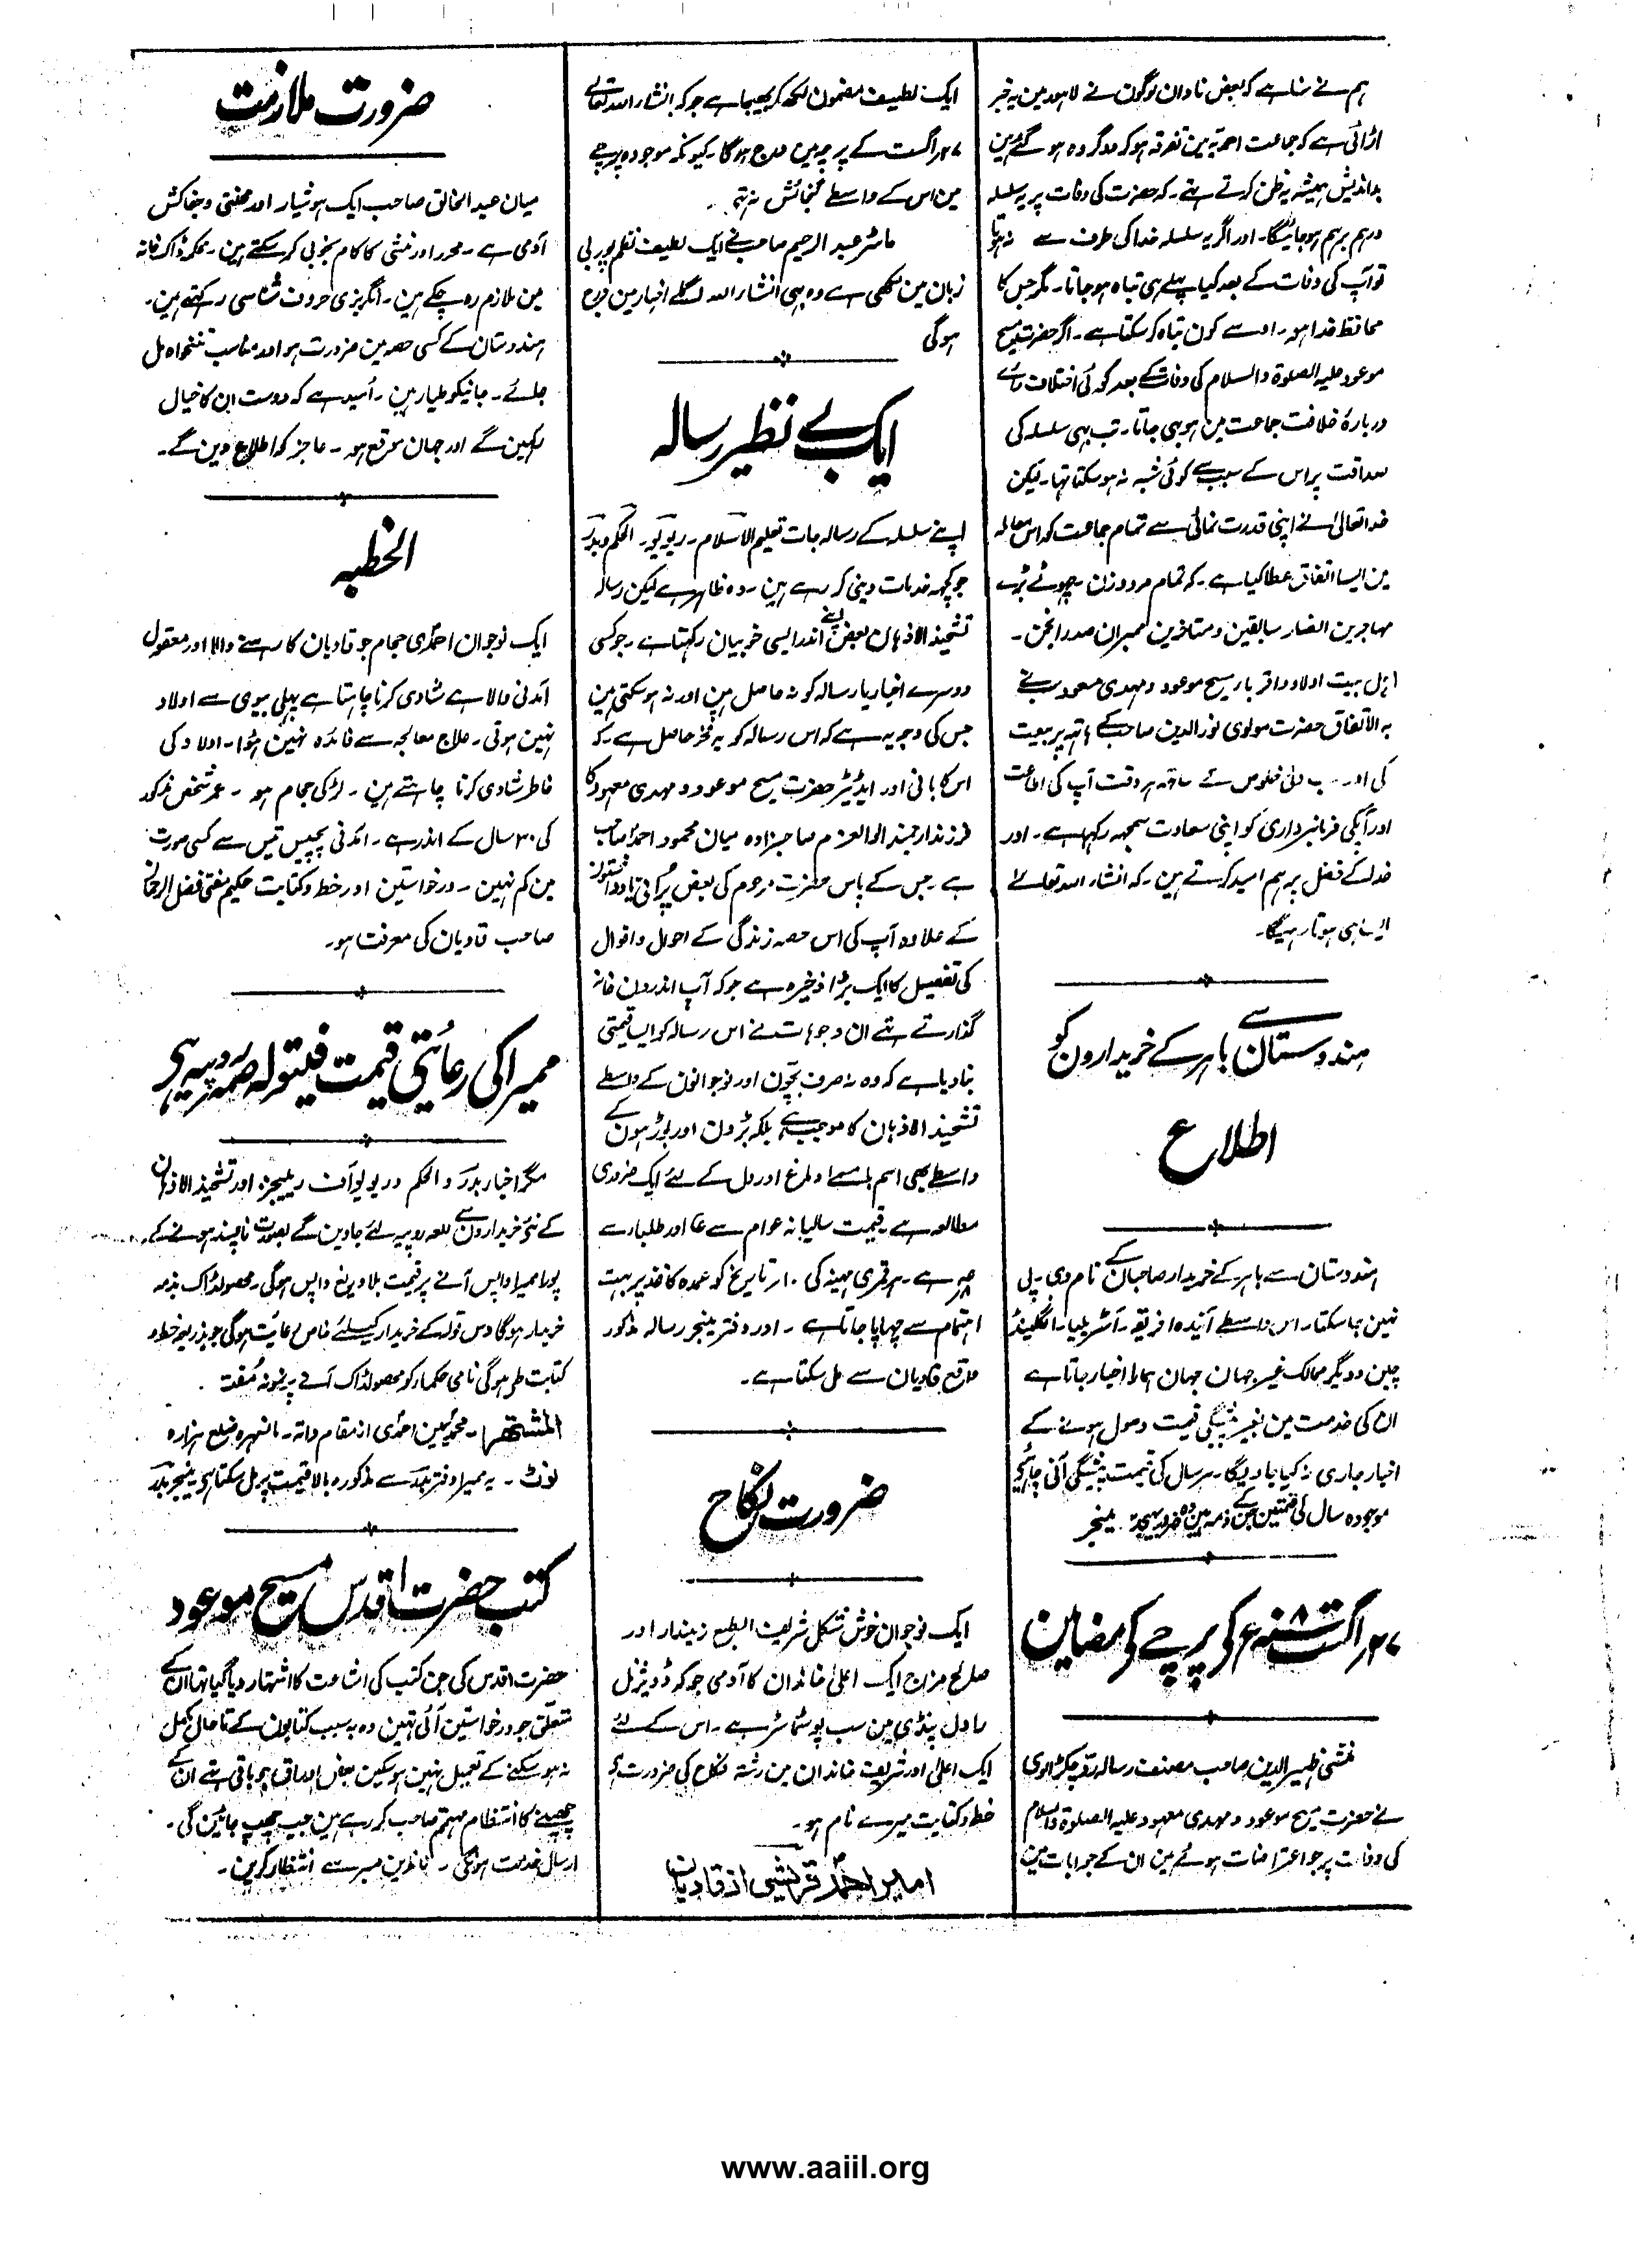 ہم نے سنا ہے کہ بعض نادان لوگون نے لاہور مین یہ خبر
اڑائی ہے کہ جماعت احمدیہ مین تفرقہ ہو کر دو گروہ ہو گئے ہین
بداندیش ہمیشہ یہ ظن کرتے تہے ۔ کہ حضرت کی وفات پر یہ سلسلہ
درہم برہم ہو جائیگا ۔ اور اگر یہ سلسلہ خدا کی طرف سے نہ ہوتا
تو آپ کی وفات کے بعد کیا پہلے ہی تباہ ہو جاتا ۔ مگر جس کا
محافظ خدا ہو ۔ اوسے کون تباہ کر سکتا ہے ۔ اگر حضرت مسیح
موعود علیہ الصلوۃ والسلام کی وفات کے بعد کوئی اختلاف رائے
دربارۂ خلافت جماعت مین ہو بہی جاتا ۔ تب بہی سلسلہ کی
صداقت پر اس کے سبب سے کوئی شبہ نہ ہو سکتا تہا ۔ لیکن
خدا تعالیٰ نے اپنی قدرت نمائی سے تمام جماعت کو اس معاملہ
مین ایسا اتفاق عطا کیا ہے ۔ کہ تمام مرد و زن ۔ چہوٹے بڑے
مہاجرین انصار سابقین و متاخرین ممبران صدر انجمن ۔
اہل بیت اولاد و اقربا مسیح موعود و مہدی معہود سب نے
بہ الاتفاق حضرت مولوی نور الدین صاحب کے ہاتہہ پر بیعت
کی اور سب دلی خلوص کے ساتہہ ہر وقت آپ کی اطاعت
اور آپکی فرمانبرداری کو اپنی سعادت سمجہہ رکہا ہے ۔ اور
خدا کے فضل پر ہم امید کرتے ہین ۔ کہ انشاء اللہ تعالےٰ
ایسا ہی ہوتا رہیگا ۔
ہندوستان سے باہر کے خریدارون کو
اطلاع
ہندوستان سے باہر کے خریدار صاحبان کے نام وی ۔ پی
نہین جا سکتا ۔ اس واسطے آئیندہ افریقہ ۔ آسٹریلیا ۔ انگلینڈ
چین و دیگر ممالک غیر جہان جہان ہمارا اخبار جاتا ہے
ان کی خدمت مین بغیر پیشگی قیمت وصول ہونے کے
اخبار جاری نہ کیا جاویگا ۔ ہر سال کی قیمت پیشگی آنی چاہئیے
موجودہ سال کی قیمتین جن کے ذمہ ہین وہ ضرور بہیجدین ۔ منیجر
۲۷ اگست ۱۹۰۸ء کے پرچے کے مضامین
منشی ظہیر الدین صاحب مصنف رسالہ رد چکڑالوی
نے حضرت مسیح موعود و مہدی معہود علیہ الصلوۃ والسلام
کی وفات پر جو اعتراضات ہوئے ہین ان کے جوابات مین
ایک لطیف مضمون لکھ کر بہیجا ہے جو کہ انشاء اللہ تعالےٰ
۲۷ اگست کے پرچہ مین درج ہوگا ۔ کیونکہ موجودہ پرچے
مین اس کے واسطے گنجائش نہ تہی ۔
ماسٹر عبد الرحیم صاحب نے ایک لطیف نظم پوربی
زبان مین لکھی ہے وہ بہی انشاء اللہ اگلے اخبار مین درج
ہوگی
ایک بے نظیر رسالہ
اپنے سلسلہ کے رسالہ جات تعلیم الاسلام ۔ ریویو ۔ الحکم و بدر
جو کچہہ خدمات دینی کر رہے ہین ۔ وہ ظاہر ہے لیکن رسالہ
تشحیذ الاذہان بعض اپنے اندر ایسی خوبیان رکہتا ہے ۔ جو کسی
دوسرے اخبار یا رسالہ کو نہ حاصل ہین اور نہ ہو سکتی ہین
جس کی وجہ یہ ہے کہ اس رسالہ کو یہ فخر حاصل ہے ۔ کہ
اس کا بانی اور ایڈیٹر حضرت مسیح موعود و مہدی معہود کا
فرزند ارجمند اولو العزم صاحبزادہ میان محمود احمد صاحب
ہے ۔ جس کے پاس حضرت مرحوم کی بعض پرانی یادداشتون
کے علاوہ آپ کی اس حصہ زندگی کے احوال و اقوال
کی تفصیل کا ایک بڑا ذخیرہ ہے جو کہ آپ اندرون خانہ
گذارتے تہے ان وجوہات نے اس رسالہ کو ایسا قیمتی
بنا دیا ہے کہ وہ نہ صرف بچون اور نوجوانون کے واسطے
تشحیذ الاذہان کا موجب ہے بلکہ بڑون اور بوڑہون کے
واسطے بھی اسم بامسمے دماغ اور دل کے لئے ایک ضروری
مطالعہ ہے ۔ قیمت سالیانہ عوام سے عا اور طلباء سے
ہے ۔ ہر قمری مہینہ کی ۱۰ تاریخ کو عمدہ کاغذ پر بہت
اہتمام سے چہاپا جاتا ہے ۔ اور دفتر منیجر رسالہ مذکور
واقع قادیان سے مل سکتا ہے ۔
ضرورت نکاح
ایک نوجوان خوش شکل شریف الطبع زمیندار اور
صالح مزاج ایک اعلیٰ خاندان کا آدمی جو کہ ڈویژنل
راول پنڈی مین سب پوسٹماسٹر ہے ۔ اس کے لئے
ایک اعلیٰ اور شریف خاندان مین رشتہ نکاح کی ضرورت ہے
خط و کتابت میرے نام ہو ۔
امیر احمد قریشی از قادیان
ضرورت ملازمت
میان عبد الخالق صاحب ایک ہوشیار اور محنتی و جفاکش
آدمی ہے ۔ محرر اور منشی کا کام بخوبی کر سکتے ہین ۔ محکمہ ڈاک خانہ
مین ملازم رہ چکے ہین ۔ انگریزی حروف شناسی رکہتے ہین ۔
ہندوستان کے کسی حصہ مین ضرورت ہو اور مناسب تنخواہ مل
جائے ۔ جانیکو طیار ہین ۔ اُمید ہے کہ دوست ان کا خیال
رکہین گے اور جہان موقع ہو ۔ عاجز کو اطلاع دین گے ۔
الخطبہ
ایک نوجوان احمدی حجام جو قادیان کا رہنے والا اور معقول
آمدنی والا ہے شادی کرنا چاہتا ہے پہلی بیوی سے اولاد
نہین ہوتی ۔ علاج معالجہ سے فائدہ نہین ہوا ۔ اولاد کی
خاطر شادی کرنا چاہتے ہین ۔ لڑکی حجام ہو ۔ عمر شخص مذکور
کی ۳۰ سال کے اندر ہے ۔ آمدنی پچیس تیس سے کسی صورت
مین کم نہین ۔ درخواستین اور خط و کتابت حکیم مفتی فضل الرحمان
صاحب قادیان کی معرفت ہو ۔
ممیرا کی رعائتی قیمت فیتولہ روپیہ ہے
مگر اخبار بدر و الحکم و ریویو آف ریلیجنز اور تشحیذ الاذہان
کے نئے خریدارون سے للعہ روپیہ لئے جاوین گے بصورت ناپسند ہونے کے
پورا ممیرا واپس آنے پر قیمت بلا دریغ واپس ہوگی ۔ محصولڈاک بذمہ
خریدار ہوگا دس تولہ کے خریدار کیلئے خاص رعایت ہوگی جو بذریعہ خط و
کتابت طے ہوگی نامی حکماء کو محصولڈاک آنے پر نمونہ مُفت ۔
المشتھر ۔ محمد یٰسین احمدی از مقام داتہ ۔ مانسہرہ ضلع ہزارہ
نوٹ ۔ یہ ممیرا دفتر بدر سے مذکورہ بالا قیمت پر مل سکتا ہے ۔ منیجر بدر
کتب حضرت اقدس مسیح موعود
حضرت اقدس کی جن کتب کی اشاعت کا اشتہار دیا گیا تہا ان کے
متعلق جو درخواستین آئی تہین وہ بہ سبب کتابون کے تاحال مکمل
نہ ہو سکنے کے تعمیل نہین ہو سکین بعض اوراق جو باقی تہے ان کے
چھپنے کا انتظام مہتمم صاحب کر رہے ہین جب چھپ جائین گی ۔
ارسال خدمت ہونگی ۔ ناظرین صبر سے انتظار کرین ۔
www.aaiil.org